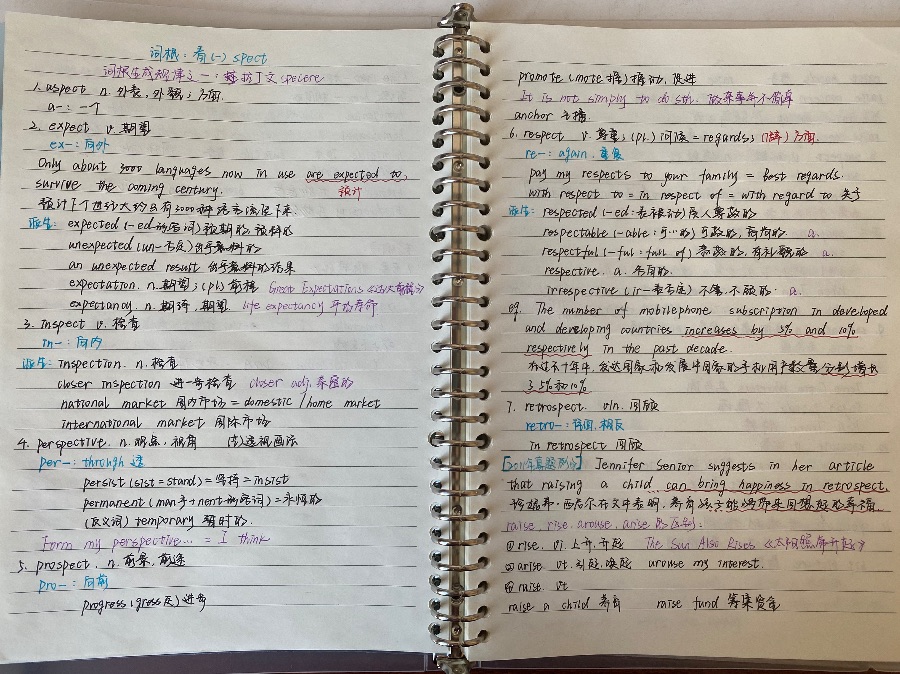 词根：看(一) spect
词根生成规律之一：拉丁文 specere
1. aspect n. 外表，外貌；方面.
a-：一个
2. expect v. 期望
ex-：向外
Only about 3000 languages now in use are expected to
survive the coming century.
预计
预计下个世纪大约只有3000种语言流传下来.
派生：expected (-ed 形容词) 预期的, 预料的
unexpected (un-否定) 出乎意料的
an unexpected result 出乎意料的结果
expectation n. 期望；(pl.) 前程 Great Expectations《远大前程》
expectancy n. 期待, 期望. life expectancy 平均寿命
3. inspect v. 检查
in-：向内
派生：inspection. n. 检查
closer inspection 进一步检查 closer adj. 靠近的
national market 国内市场 = domestic / home market
international market 国际市场
4. perspective. n. 观点, 视角 透视画法
per-：through 透
persist (sist = stand) = 坚持 = insist
permanent (man手 + nent 形容词) = 永恒的
(反义词) temporary 暂时的.
Form my perspective... = I think
5. prospect. n. 前景, 前途
pro-：向前
progress (gress 走) 进步
promote (mote 挪) 推动, 促进
It is not simply to do sth. 做某事并不简单
anchor 主播.
6. respect v. 尊重；(pl.) 问候 = regards; 方面.
re-：again. 重复
pay my respects to your family = best regards.
with respect to = in respect of = with regard to 关于
派生：respected (-ed: 表被动) 受人尊敬的
respectable (-able: 可…的) 可敬的, 高尚的. a.
respectful (-ful: full of) 恭敬的, 有礼貌的 a.
respective. a. 各自的.
irrespective (ir-表否定) 不管, 不顾的. a.
eg. The number of mobilephone subscription in developed
and developing countries increases by 5% and 10%
respectively in the past decade.
在过去十年中, 发达国家和发展中国家的手机用户数量分别增长
了5%和10%
7. retrospect. v/n. 回顾
retro-：向回, 相反
in retrospect 回顾
[2011年真题例句] Jennifer Senior suggests in her article
that raising a child can bring happiness in retrospect.
珍妮弗·西尼尔在文中表明, 养育孩子能够带来回想起的幸福.
raise, rise, arouse, arise 的区别：
①rise. vi. 上升, 升起 The Sun Also Rises《太阳照常升起》
vt. 引起, 唤起 arouse my interest.
raise. vt
raise a child 养育 raise fund 筹集资金